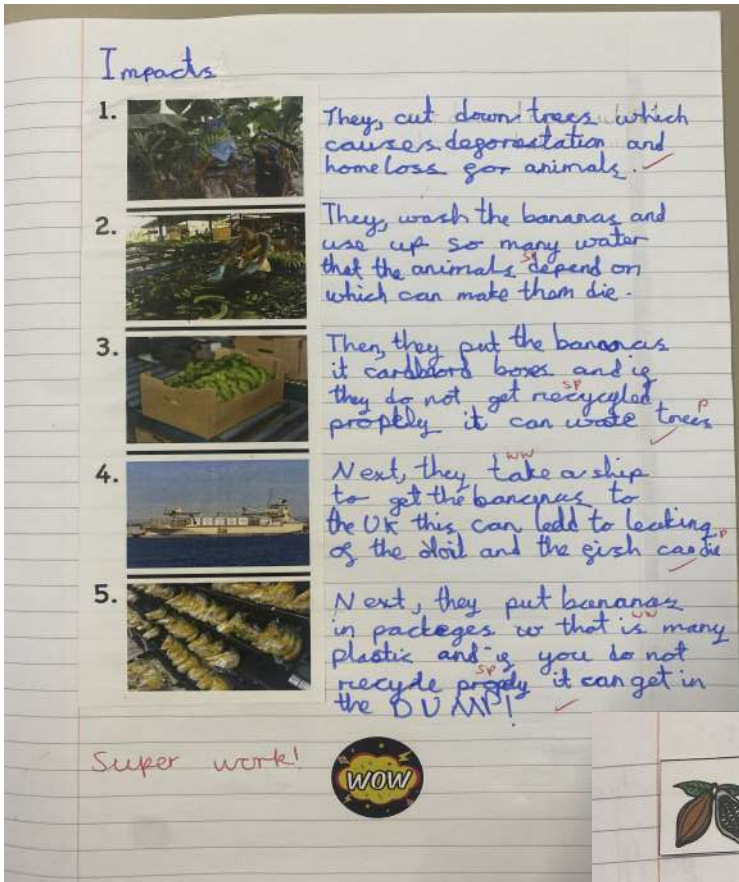 Impacts
1.
They, cut down trees which
causes deforestation and
homeloss for animals.
2.
They, wash the bananas and
use up so many water
sp
that the animals depend on
which can make them die.
3.
Then, they put the bananas
it cardboard boxes and if
sp
they do not get recycyled
p
it can waste trees
4.
ww
Next, they take a ship
to get the bananas to
the UK this can ledd to leaking
p
of the oil and the fish can die
5.
Next, they put bananas
ww
in packeges w that is many
plastic and if you do not
sp
recycle it can get in
the DUMP!
Super work!
WOW